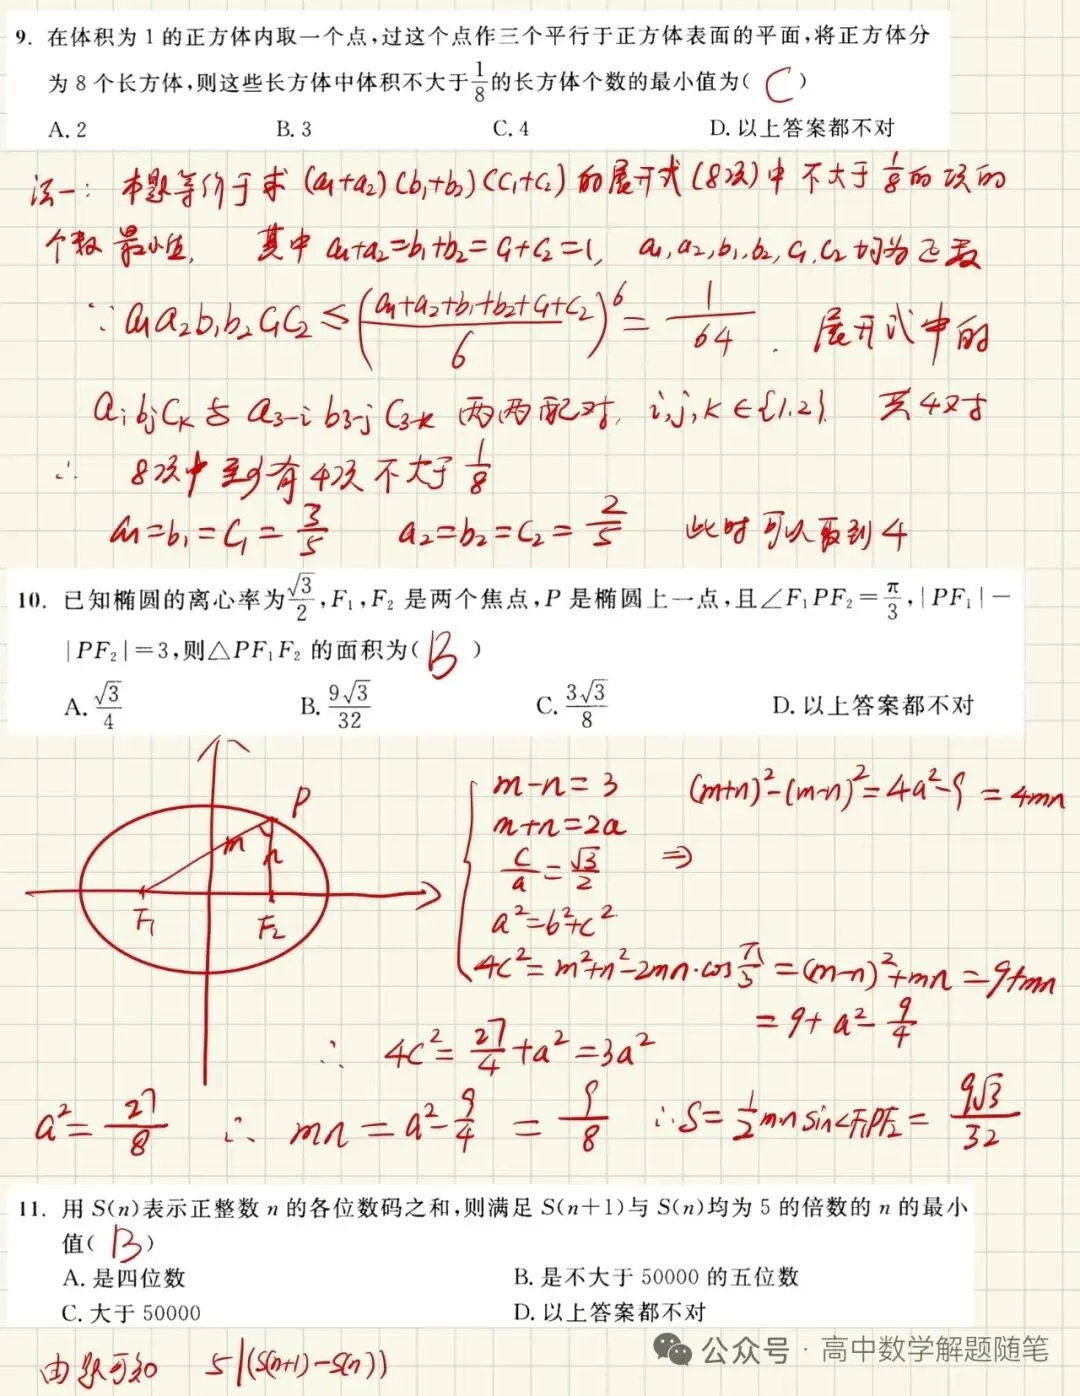 9. 在体积为 1 的正方体内取一个点,过这个点作三个平行于正方体表面的平面,将正方体分
为 8 个长方体,则这些长方体中体积不大于1/8的长方体个数的最小值为( C )
A. 2 B. 3 C. 4 D. 以上答案都不对
法一: 本题等价于求 (a₁+a₂)(b₁+b₂)(c₁+c₂) 的展开式(8项)中 不大于 1/8 的项的
个数最小值, 其中 a₁+a₂=b₁+b₂=c₁+c₂=1, a₁,a₂,b₁,b₂,c₁,c₂ 均为正数
∵ a₁a₂b₁b₂c₁c₂ ≤ ((a₁+a₂+b₁+b₂+c₁+c₂)/6)⁶ = 1/64 . 展开式中的
aᵢbⱼcₖ 与 a₃₋ᵢ b₃₋ⱼ c₃₋ₖ 两两配对, i,j,k∈{1,2} 共4对
∴ 8项中至少有4项不大于 1/8
a₁=b₁=c₁=3/5 a₂=b₂=c₂=2/5 此时可以取到4
10. 已知椭圆的离心率为√3/2,F₁,F₂ 是两个焦点,P 是椭圆上一点,且∠F₁PF₂=π/3,|PF₁|−
|PF₂|=3,则△PF₁F₂ 的面积为( B )
A. √3/4 B. 9√3/32 C. 3√3/8 D. 以上答案都不对
P
m
n
F₁
F₂
m−n=3 (m+n)²−(m−n)²=4a²−9=4mn
m+n=2a
c/a=√3/2 ⇒
a²=b²+c²
4c²=m²+n²−2mn·cosπ/3=(m−n)²+mn=9+mn
=9+a²−9/4
∴ 4c²=27/4+a²=3a²
a²=27/8 ∴ mn=a²−9/4=9/8 ∴S=1/2mnsin∠F₁PF₂=9√3/32
11. 用 S(n)表示正整数 n 的各位数码之和,则满足 S(n+1)与 S(n)均为 5 的倍数的 n 的最小
值( B )
A. 是四位数 B. 是不大于 50000 的五位数
C. 大于 50000 D. 以上答案都不对
由题可知 5|(S(n+1)−S(n))
公众号 · 高中数学解题随笔